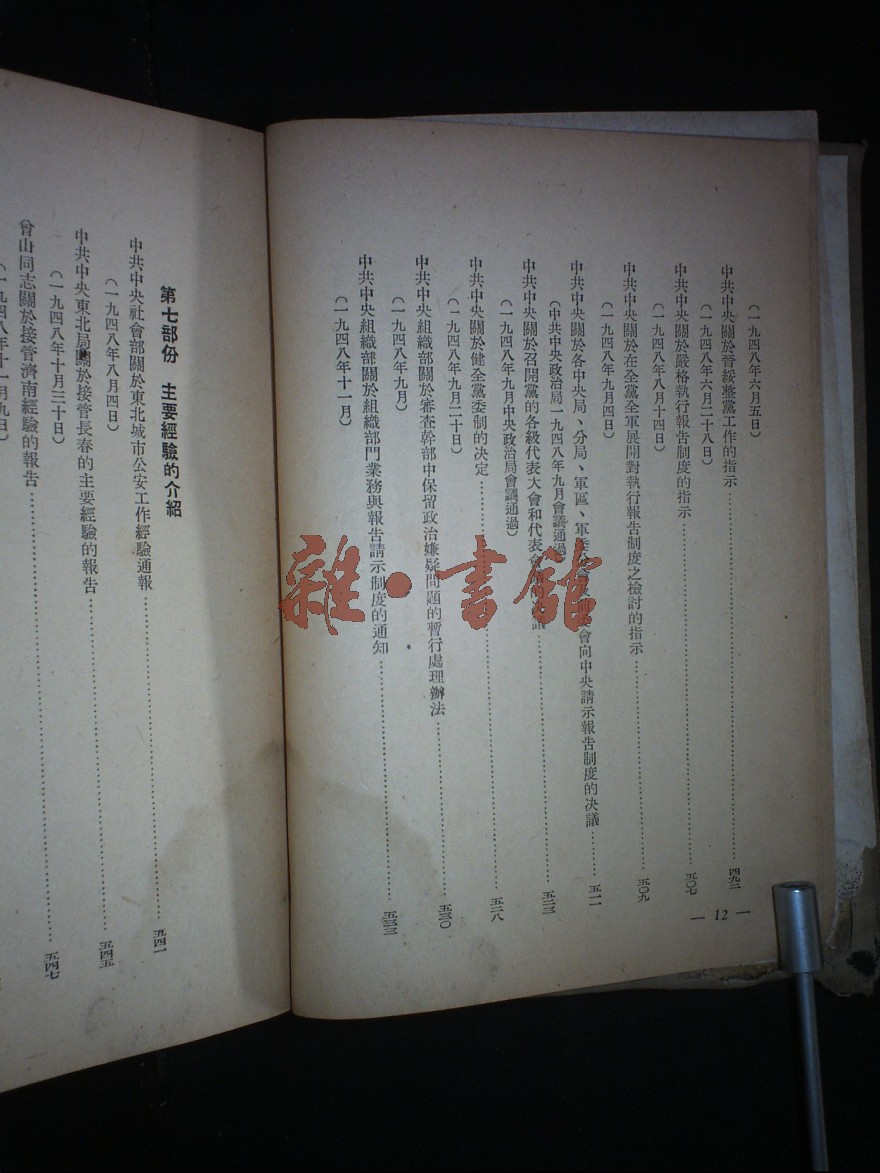 （一九四八年六月五日）
中共中央關於晉綏整黨工作的指示……四九二
（一九四八年六月二十八日）
中共中央關於嚴格執行報告制度的指示……五〇七
（一九四八年八月十四日）
中共中央關於在全黨全軍展開對執行報告制度之檢討的指示……五〇九
（一九四八年九月四日）
中共中央關於各中央局、分局、軍區、軍委分會及前委會向中央請示報告制度的決議……五一一
（中共中央政治局一九四八年九月會議通過）
中共中央關於召開黨的各級代表大會和代表會議的決議……五二三
（一九四八年九月中央政治局會議通過）
中共中央關於健全黨委制的決定……五二八
（一九四八年九月二十日）
中共中央組織部關於審查幹部中保留政治嫌疑問題的暫行處理辦法……五三〇
（一九四八年九月）
中共中央組織部關於組織部門業務與報告請示制度的通知……五三三
（一九四八年十一月）
— 12 —
第七部份 主要經驗的介紹
中共中央社會部關於東北城市公安工作經驗通報……五四一
（一九四八年八月四日）
中共中央東北局關於接管長春的主要經驗的報告……五四五
（一九四八年十月三十日）
曾山同志關於接管濟南經驗的報告……五四七
（一九四八年十一月九日）
雜·書館